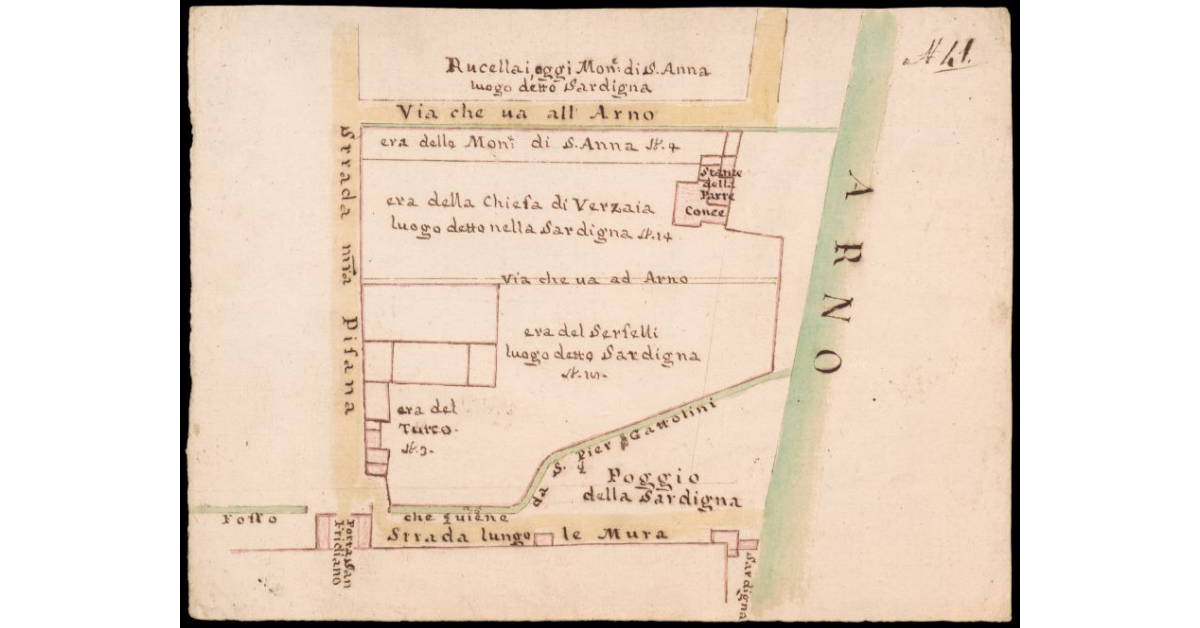 N 41.
Rucellai, oggi Mon:ͤ di S. Anna
luogo detto Sardigna
Via che ua all' Arno
era delle Mon:ͤ di S. Anna St. 4
Stanze
della
Parre
Conce
era della Chiesa di Verzaia
luogo detto nella Sardigna St. 14
Strada mr̃a Pisana
ARNO
Via che ua ad Arno
era del Serselli
luogo detto Sardigna
era del
Turco.
St. 3.
da S. Pier Gattolini
Poggio
della Sardigna
Fosso
che quiene
Strada lungo le Mura
Porta San
Fridiano
Sardigna